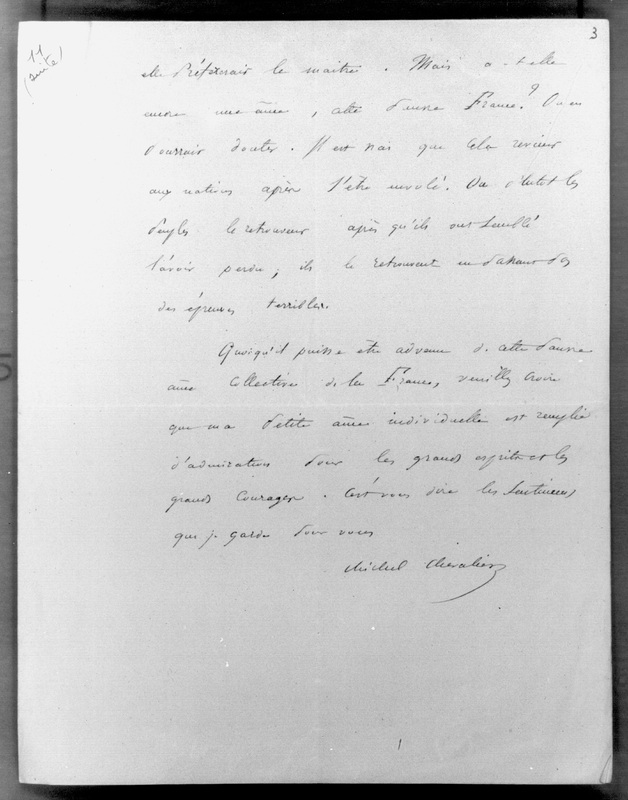 3
11
(suite)
elle préférerait le maître. Mais a-t-elle
encore une âme, cette pauvre France? On en
pourrait douter. Il est vrai que cela revient
aux nations après s'être envolé. Ou plutôt les
peuples le retrouvent après qu'ils ont semblé
l'avoir perdu; ils le retrouvent en passant par
des épreuves terribles.
Quoiqu'il puisse être advenu de cette pauvre
âme collective de la France, veuillez croire
que ma petite âme individuelle est remplie
d'admiration pour les grands esprits et les
grands courages. C'est vous dire les sentiments
que je garde pour vous
Michel Chevalier